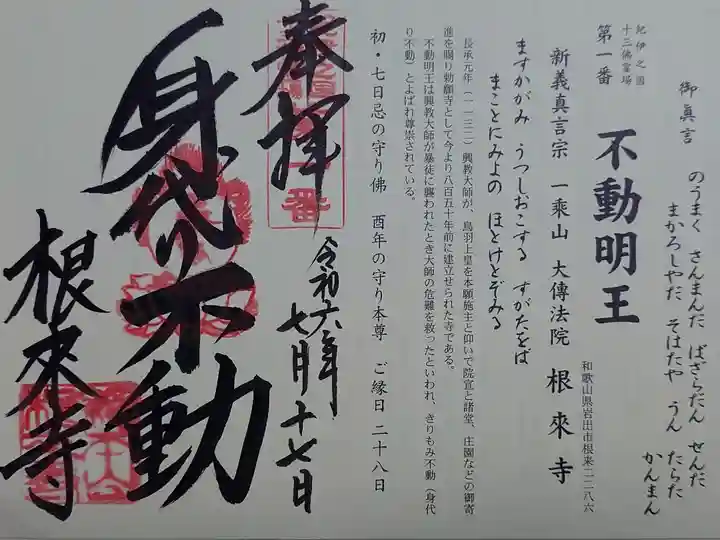 御眞言
のうまく さんまんだ ばざらだん せんだ
まかろしやだ そはたや うん たらた
かんまん
紀伊之國
十三佛霊場
第一番
不動明王
和歌山県岩出市根来二二八六
新義真言宗 一乗山 大傳法院 根來寺
ますかがみ うつしおこする すがたをば
まことにみよの ほとけとぞみる
長承元年(一一三二)興教大師が、鳥羽上皇を本願施主と仰いで院宣と諸堂、庄園などの御寄
進を賜り勅願寺として今より八百五十年前に建立せられた寺である。
不動明王は興教大師が暴徒に襲われたとき大師の危難を救ったといわれ、きりもみ不動(身代
り不動)とよばれ尊崇されている。
初・七日忌の守り佛 酉年の守り本尊 ご縁日 二十八日
奉拝
令和六年
七月十七日
身代り不動
根來寺